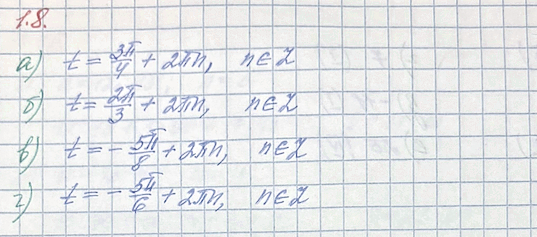 1.8.
а) t = 3π/4 + 2πn, n∈Z
б) t = 2π/3 + 2πn, n∈Z
в) t = - 5π/8 + 2πn, n∈Z
г) t = - 5π/6 + 2πn, n∈Z